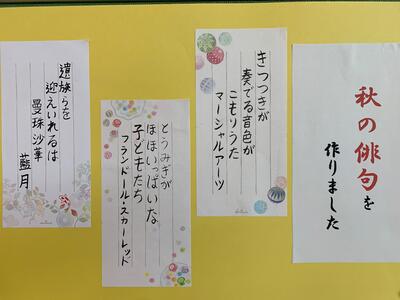 秋の俳句を
作りました
きつつきが
奏でる音色が
こもりうた
マーシャルアーツ
とうみぎが
ほほいっぱいな
子どもたち
フランドール・スカーレット
遺族らを
迎えいれるは
曼珠沙華
藍月